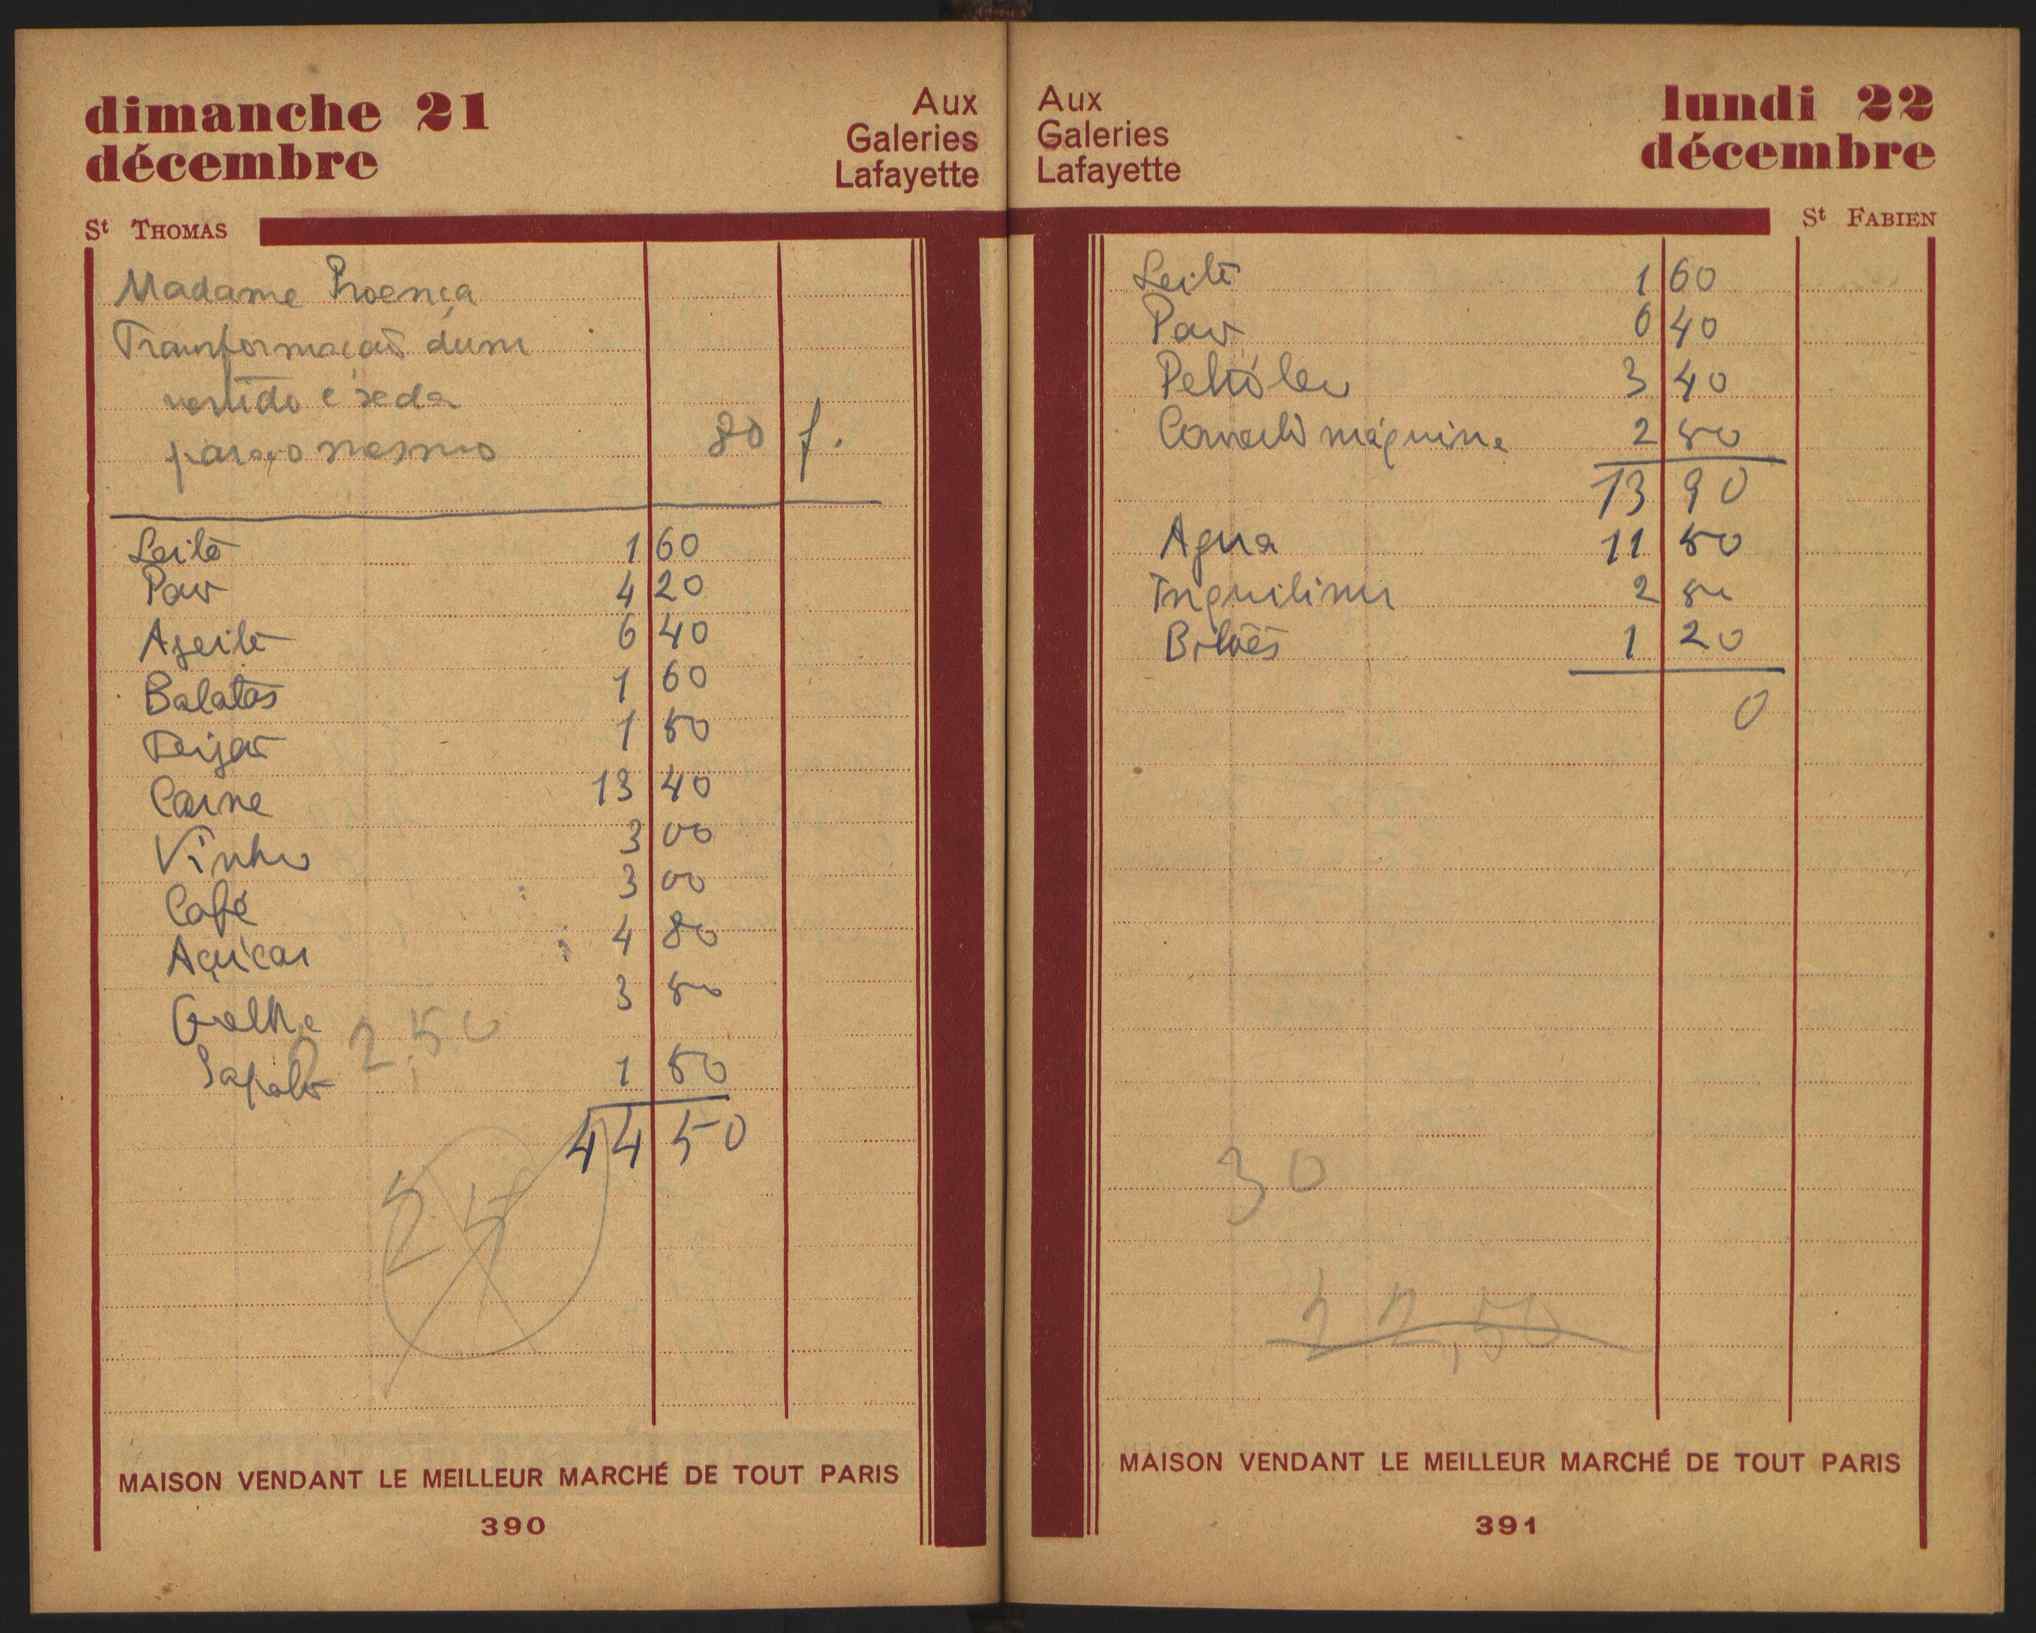 dimanche 21
décembre
Aux
Galeries
Lafayette
St THOMAS
Madame Proença
Tranformação dum
vestido e seda
para o mesmo 80 f.
Leite 1 60
Pão 4 20
Azeite 6 40
Batatas 1 60
Feijão 1 50
Carne 13 40
Vinho 3 00
Café 3 00
Açúcar 4 80
3 50
2,50
Sapato 1 50
44 50
25
MAISON VENDANT LE MEILLEUR MARCHÉ DE TOUT PARIS
390
Aux
Galeries
Lafayette
lundi 22
décembre
St FABIEN
Leite 1 60
Pão 0 40
Petróleo 3 40
máquina 2 50
13 90
Agua 11 50
Inquilino 2 50
1 20
0
30
22,50
MAISON VENDANT LE MEILLEUR MARCHÉ DE TOUT PARIS
391